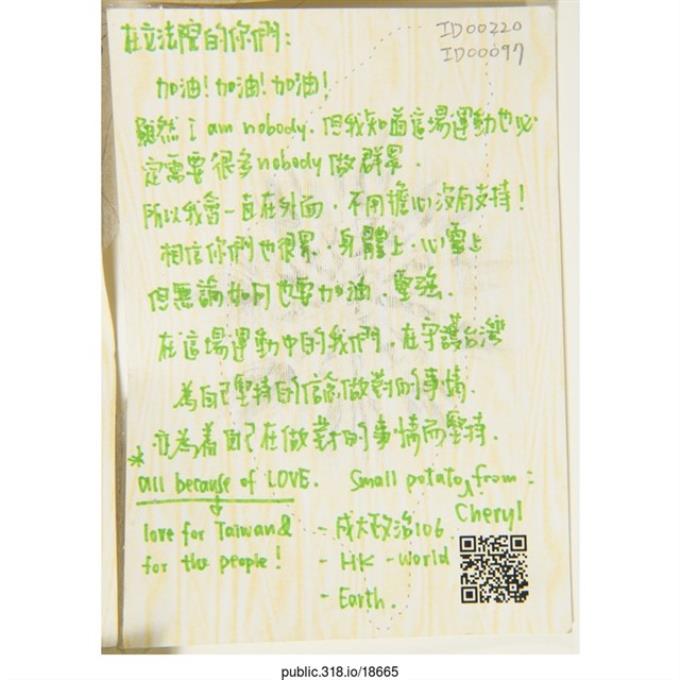 在立法院的你們：
ID00220
ID00097
加油！加油！加油！
雖然 I am nobody. 但我知道這場運動也必
定需要很多 nobody 做群眾.
所以我會一直在外面, 不用擔心沒有支持！
相信你們也很累. 身體上. 心靈上
但無論如何也要加油 堅強.
在這場運動中的我們, 在守護台灣
為自己堅持的信念做對的事情.
亦為着自己在做對的事情而堅持.
* all because of LOVE. Small potato, from :
Cheryl
love for Taiwan &
for the people !
- 成大政治106.
- HK - World
- Earth.
public.318.io/18665